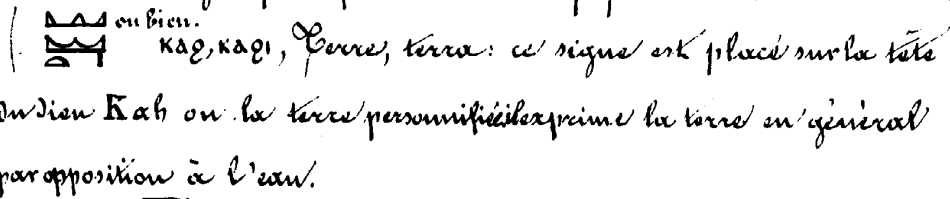 ou bien.
ⲕⲁϩ, ⲕⲁϩⲓ, Terre, terra: ce signe est placé sur la tête
du dieu Kah ou la terre personnifiée il exprime la terre en général
par opposition à l'eau.